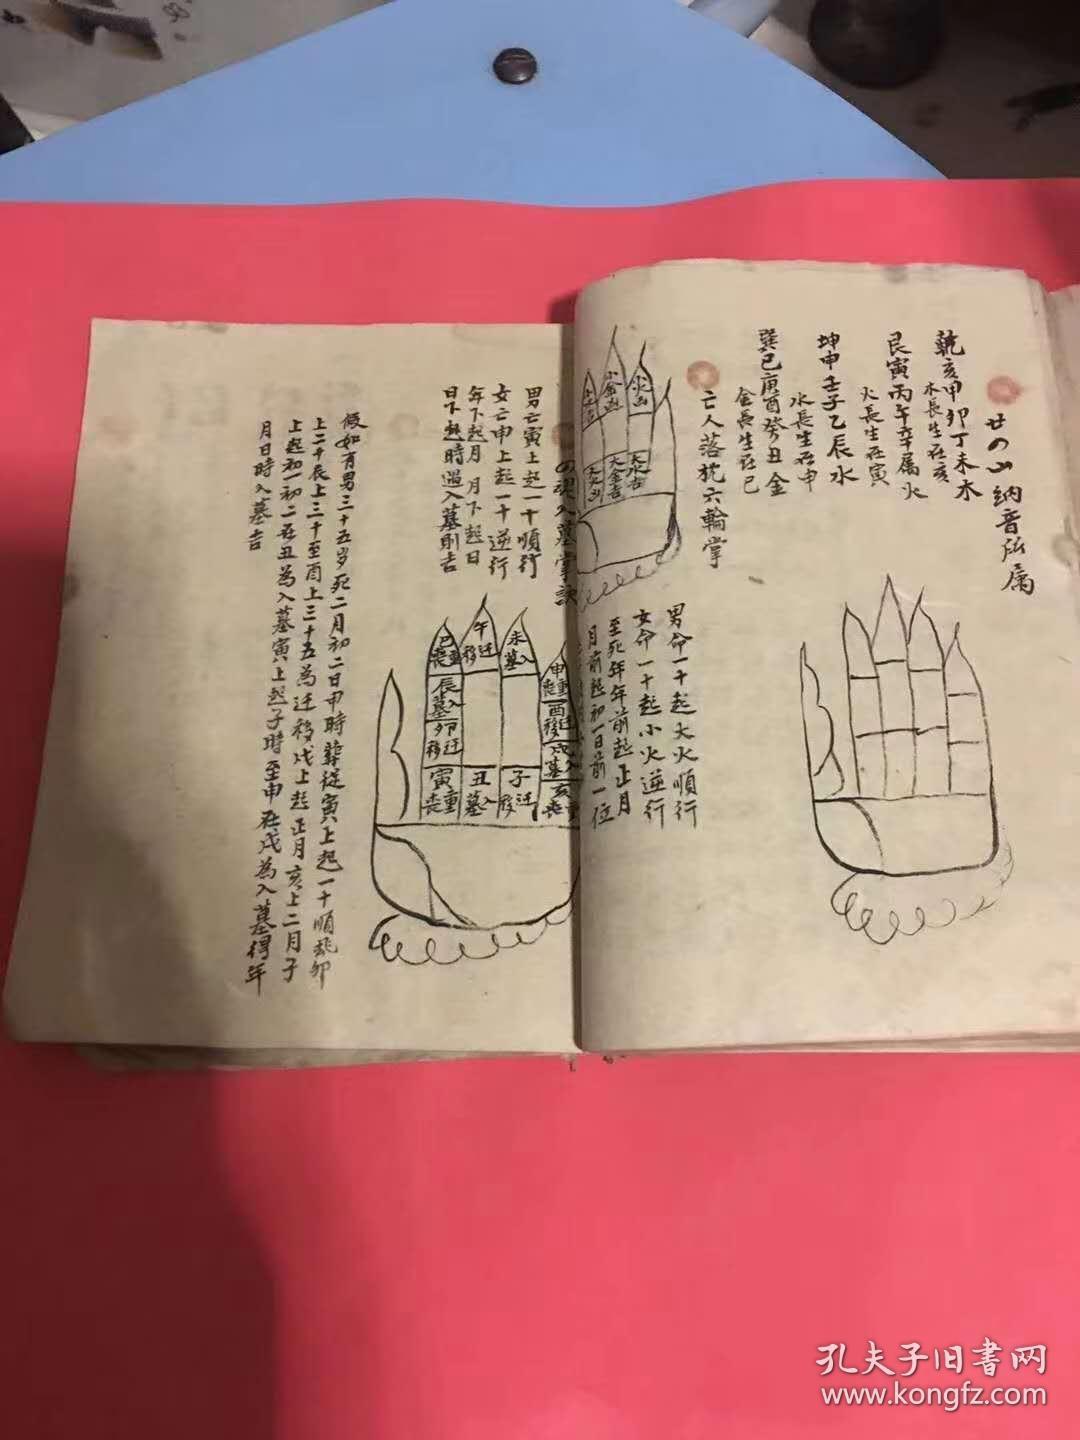 廿四山納音所属
乾亥甲卯丁未木
木長生在亥
艮寅丙午辛属火
火長生在寅
坤申壬子乙辰水
水長生在申
巽巳庚酉癸丑金
金長生在巳
亡人落枕六輪掌
小火凶
小金凶
大水吉
大金吉
大火凶
男命一十起大火順行
女命一十起小火逆行
至死年年前起正月
月前起初一日前一位
入墓掌訣
男亡寅上起一十順行
女亡申上起一十逆行
年下起月 月下起日
日下起時過入墓則吉
巳重喪
午迁移
未入墓
申重喪
辰入墓
酉迁移
卯迁移
戌入墓
寅重喪
丑入墓
子迁移
亥重喪
假如有男三十五岁死二月初二日申時葬從寅上起一十順飛卯
上二十辰上三十至酉上三十五為迁移戌上起正月亥上二月子
上起初一初二在丑為入墓寅上起子時至申在戌為入墓得年
月日時入墓吉
孔夫子旧書网
www.kongfz.com